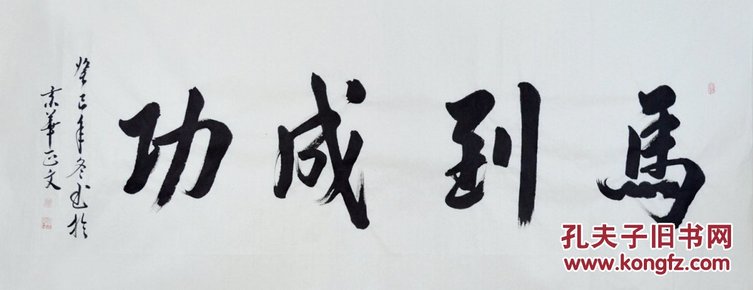 馬到成功
癸巳年冬書於
京華正文
孔夫子旧书网
www.kongfz.com